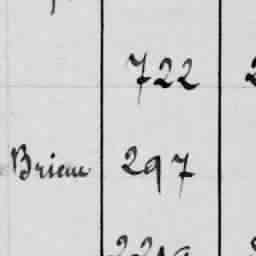 722
Brieuc 297